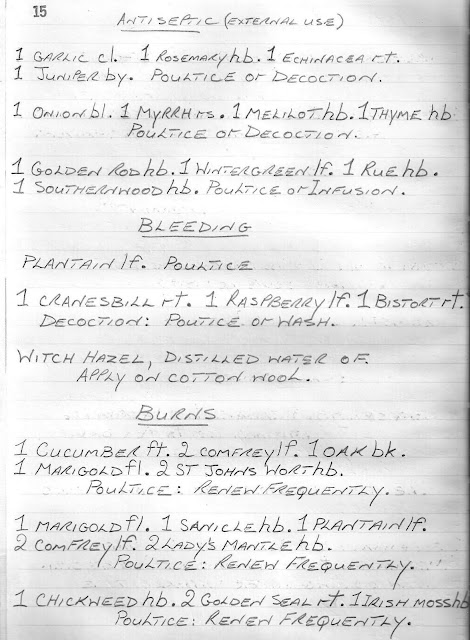 15
ANTISEPTIC (EXTERNAL USE)
1 GARLIC cl. 1 ROSEMARY hb. 1 ECHINACEA rt.
1 JUNIPER by. POULTICE or DECOCTION.
1 ONION bl. 1 MYRRH rs. 1 MELILOT hb. 1 THYME hb
POULTICE or DECOCTION.
1 GOLDEN ROD hb. 1 WINTERGREEN lf. 1 RUE hb.
1 SOUTHERNWOOD hb. POULTICE or INFUSION.
BLEEDING
PLANTAIN lf. POULTICE
1 CRANESBILL rt. 1 RASPBERRY lf. 1 BISTORT rt.
DECOCTION: POUTICE or WASH.
WITCH HAZEL, DISTILLED WATER OF.
APPLY ON COTTON WOOL.
BURNS
1 CUCUMBER ft. 2 COMFREY lf. 1 OAK bk.
1 MARIGOLD fl. 2 ST JOHNS WORT hb.
POULTICE: RENEW FREQUENTLY.
1 MARIGOLD fl. 1 SANICLE hb. 1 PLANTAIN lf.
2 COMFREY lf. 2 LADY'S MANTLE hb.
POULTICE: RENEW FREQUENTLY.
1 CHICKWEED hb. 2 GOLDEN SEAL rt. 1 IRISH MOSS hb
POULTICE: RENEW FREQUENTLY.